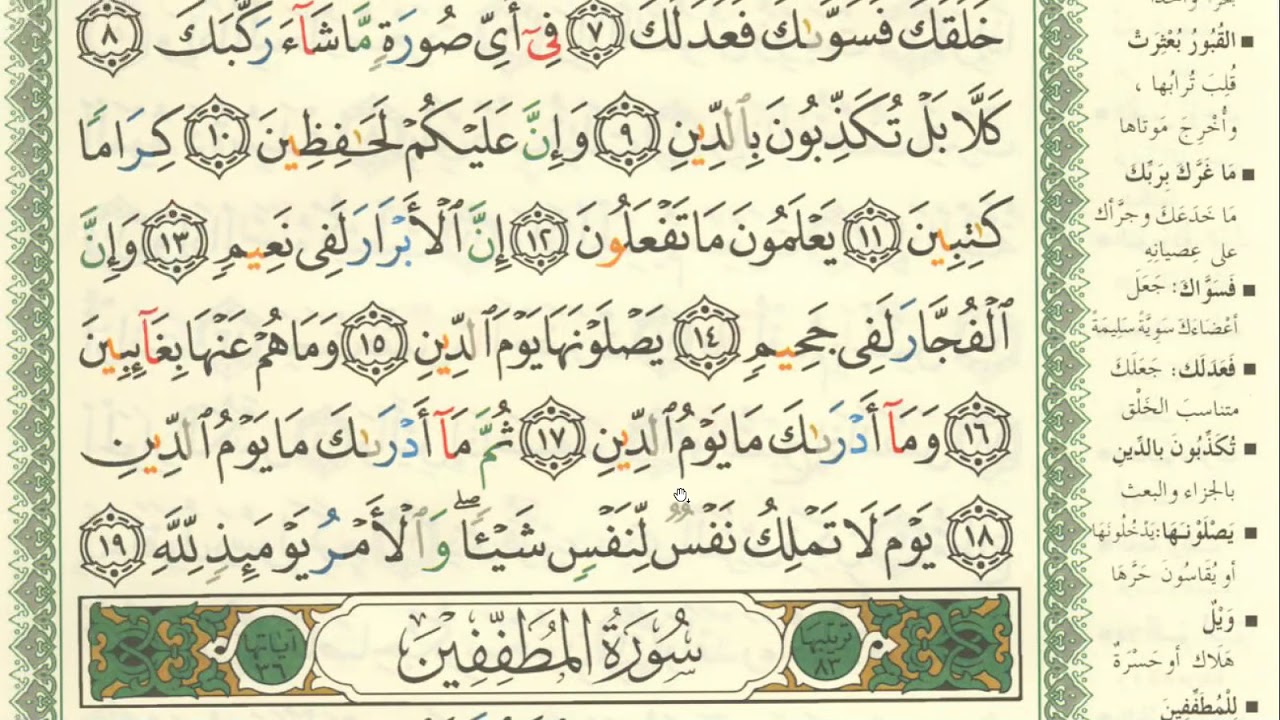 خَلَقَكَ فَسَوَّىٰكَ فَعَدَلَكَ ٧ فِىٓ أَىِّ صُورَةٍ مَّا شَآءَ رَكَّبَكَ ٨
كَلَّا بَلْ تُكَذِّبُونَ بِٱلدِّينِ ٩ وَإِنَّ عَلَيْكُمْ لَحَـٰفِظِينَ ١٠ كِرَامًا
كَـٰتِبِينَ ١١ يَعْلَمُونَ مَا تَفْعَلُونَ ١٢ إِنَّ ٱلْأَبْرَارَ لَفِى نَعِيمٍ ١٣ وَإِنَّ
ٱلْفُجَّارَ لَفِى جَحِيمٍ ١٤ يَصْلَوْنَهَا يَوْمَ ٱلدِّينِ ١٥ وَمَا هُمْ عَنْهَا بِغَآئِبِينَ
١٦ وَمَآ أَدْرَىٰكَ مَا يَوْمُ ٱلدِّينِ ١٧ ثُمَّ مَآ أَدْرَىٰكَ مَا يَوْمُ ٱلدِّينِ
١٨ يَوْمَ لَا تَمْلِكُ نَفْسٌ لِّنَفْسٍ شَيْـًٔا ۖ وَٱلْأَمْرُ يَوْمَئِذٍ لِّلَّهِ ١٩
ترتيبها ٨٣
سُورَةُ المُطَفِّفِينَ
آياتها ٣٦
■ القُبُورُ بُعْثِرَتْ
قُلِبَ تُرابُها ،
وأُخْرِجَ مَوتاها
■ مَا غَرَّكَ بِرَبِّكَ
مَا خَدَعَكَ وجرَّأك
على عِصيانِه
■ فَسَوَّاكَ: جَعَلَ
أعْضَاءَكَ سَوِيَّةً سَلِيمَةً
■ فَعَدَلَك: جَعَلَكَ
متناسبَ الخَلْق
■ تُكَذِّبُونَ بالدِّينِ
بالجزاء والبعث
■ يَصْلَوْنَـهَا: يَدْخُلُونَهَا
أو يُقَاسُونَ حَرَّهَا
■ وَيْلٌ
هَلَاك أو حَسْرَةٌ
■ لِلْمُطَفِّفِينَ